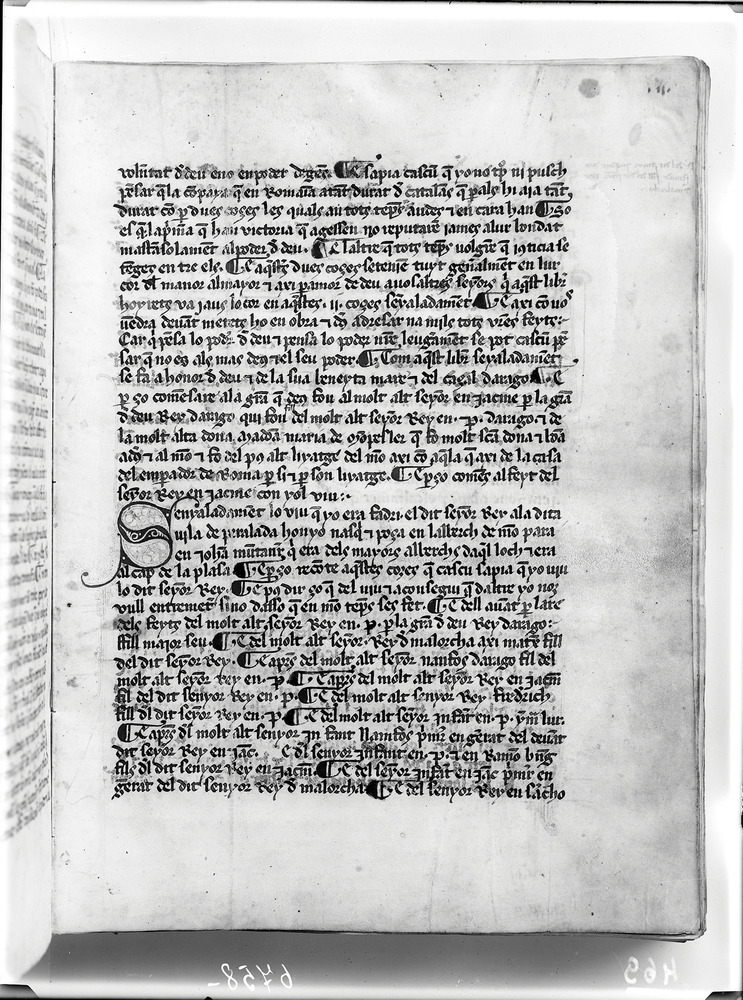 volūtat d deu eno en poder de gēs. E sapia cascū q̄ yo no tī ni pusch
pēsar q̄ la cōpāya q̄ en Romaīa atāt durat d catalās q̄ pals hi aja tāt
durat cō ꝑ dues coses les quals an totz tēps audes ⁊ en cara han So
es q̄ la pīma q̄ han victoria q̄ agessen no reputarē james a lur bondat
mas tā solamēt al poder d deu. E laltre q̄ totz tēps volgrē q̄ justicia se
tēges entre els. E aq̄stes dues coses seteniē tuyt gēalmēt en lur
cor del manor al mayor ⁊ axi ꝑ amor de deu a vosaltres seyors q̄ aq̄st libr
hoyretz va jaus lo cor en aq̄stes .ii. coses seyaladamēt E axi cō vo9
vēdra deuāt metetz ho en obra ⁊ d9 adresar na nils totz vr̄es feytz:
Car q̄ pēsa lo podr d deu ⁊ pensa lo poder nr̄e leugamēt se pot cascū pē
sar q̄ no es als mas deus ⁊ el seu poder Com aq̄st libr seyaladamēt
se fa a honor d deu ⁊ de la sua beneyta mare ⁊ del casal darago E
ꝑ so comēsare a la grā q̄ deu feu al molt alt seyor en jacme ꝑ la grā
d deu Rey darago qui fou fil del molt alt seyor Rey en .p. darago. ⁊ de
la molt alta dona madōa maria de mōpesler q̄ fo molt scā dona ⁊ bōa
a d9 ⁊ al mō ⁊ fo del pus alt liyatge del mō axi cō aq̄la q̄ axi de la casa
del emperador de Roma ꝑ si ⁊ ꝑ son liyatge. E ꝑ so comēs al feyt del
seyor Rey en jacme con yol viu:
Senyaladament lo viu q̄ yo era fadri. el dit seyor Rey a la dita
vila de peralada hon yo nasq̄ ⁊ posa en lalberch de mō pare
en johā mūtaner q̄ era dels mayors alberchs daq̄l loch ⁊ era
al cap de la plasa E ꝑ so recōte aq̄stes coses q̄ cascu sapia q̄ yo viu
lo dit seyor Rey. E pus dir so q̄ del viu ⁊ aconsegui q̄ daltre yo nom
vull entremetr sino daso q̄ en mō tēps ses fet. E dell auāt ꝑlare
dels feytz del molt alt seyor Rey en .p. ꝑ la grā d deu Rey darago:
fill major seu. E del molt alt seyor. Rey d malorcha axi matex fill
del dit seyor Rey. E apres del molt alt seyor nanfos darago fil del
molt alt seyor Rey en .p. E apres del molt alt seyor Rey en jacm
fil del dit senyor Rey en .p. E del molt alt senyor Rey frederich
fill dl dit seyor Rey en .p. E del molt alt seyor infāt en .p. germa lur.
E apres dl molt alt senyor infant Nanfos pīmer engērat del deuāt
dit seyor Rey en jac. E dl senyor infant en .p. ⁊ en Ramō bng
fills dl dit senyor Rey en jacm. E del seyor infāt en jac pīmer en
gērat del dit senyor Rey d malorcha. E del senyor Rey en sancho
6758-
469